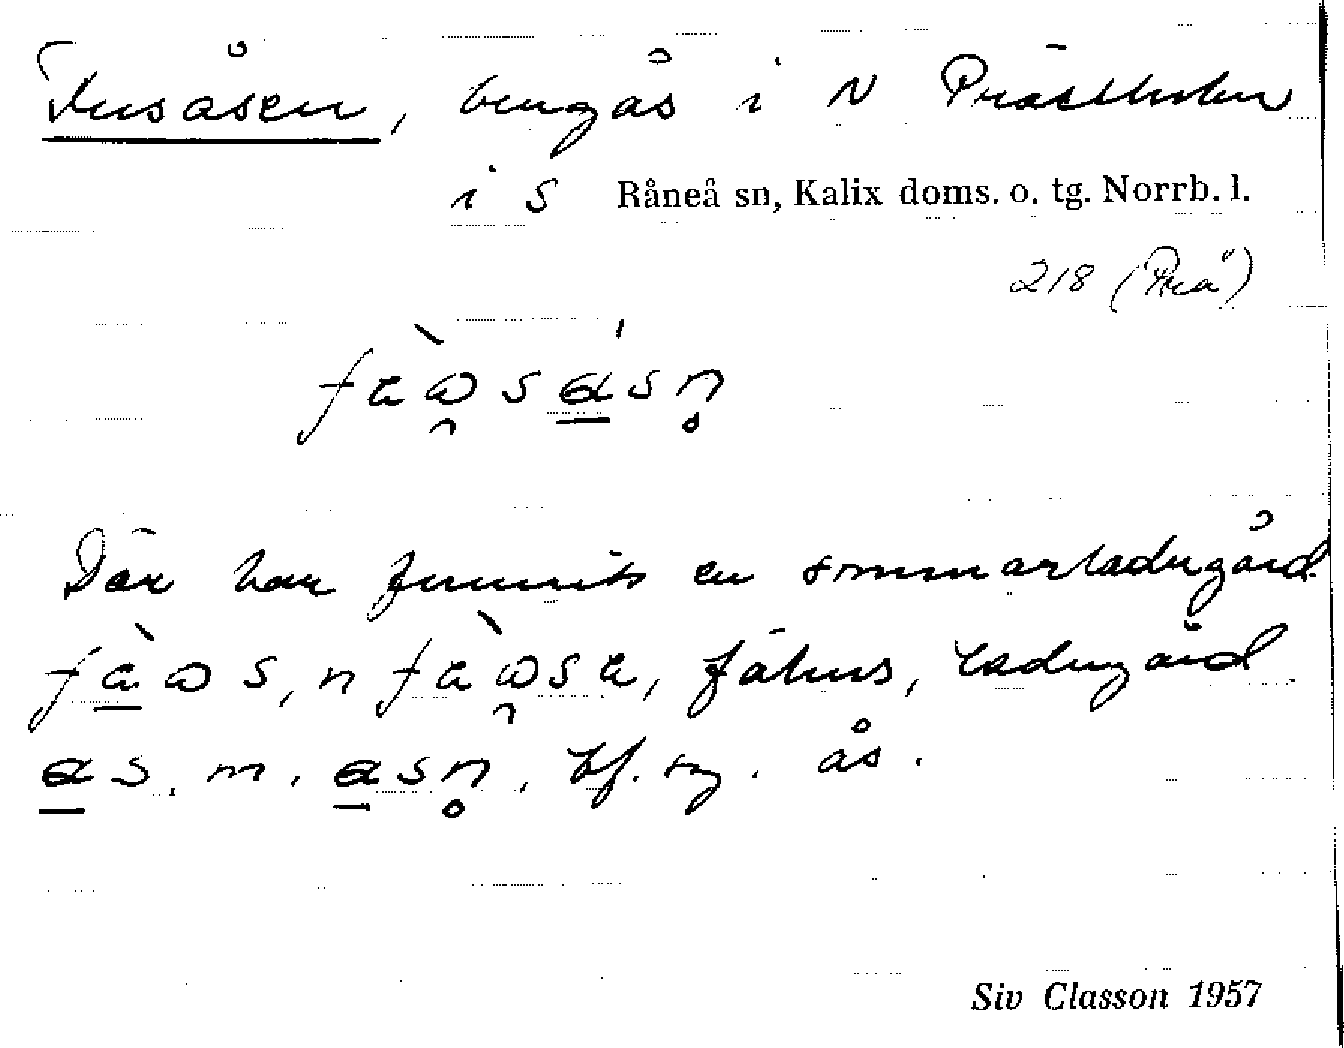 Fusåsen, bergås i N Prästholm
i S Råneå sn, Kalix doms. o. tg. Norrb. l.
218 (Prä)
Där har funnits en sommarladugård.
fähus, ladugård
m. bf. sg. ås.
Siv Classon 1957